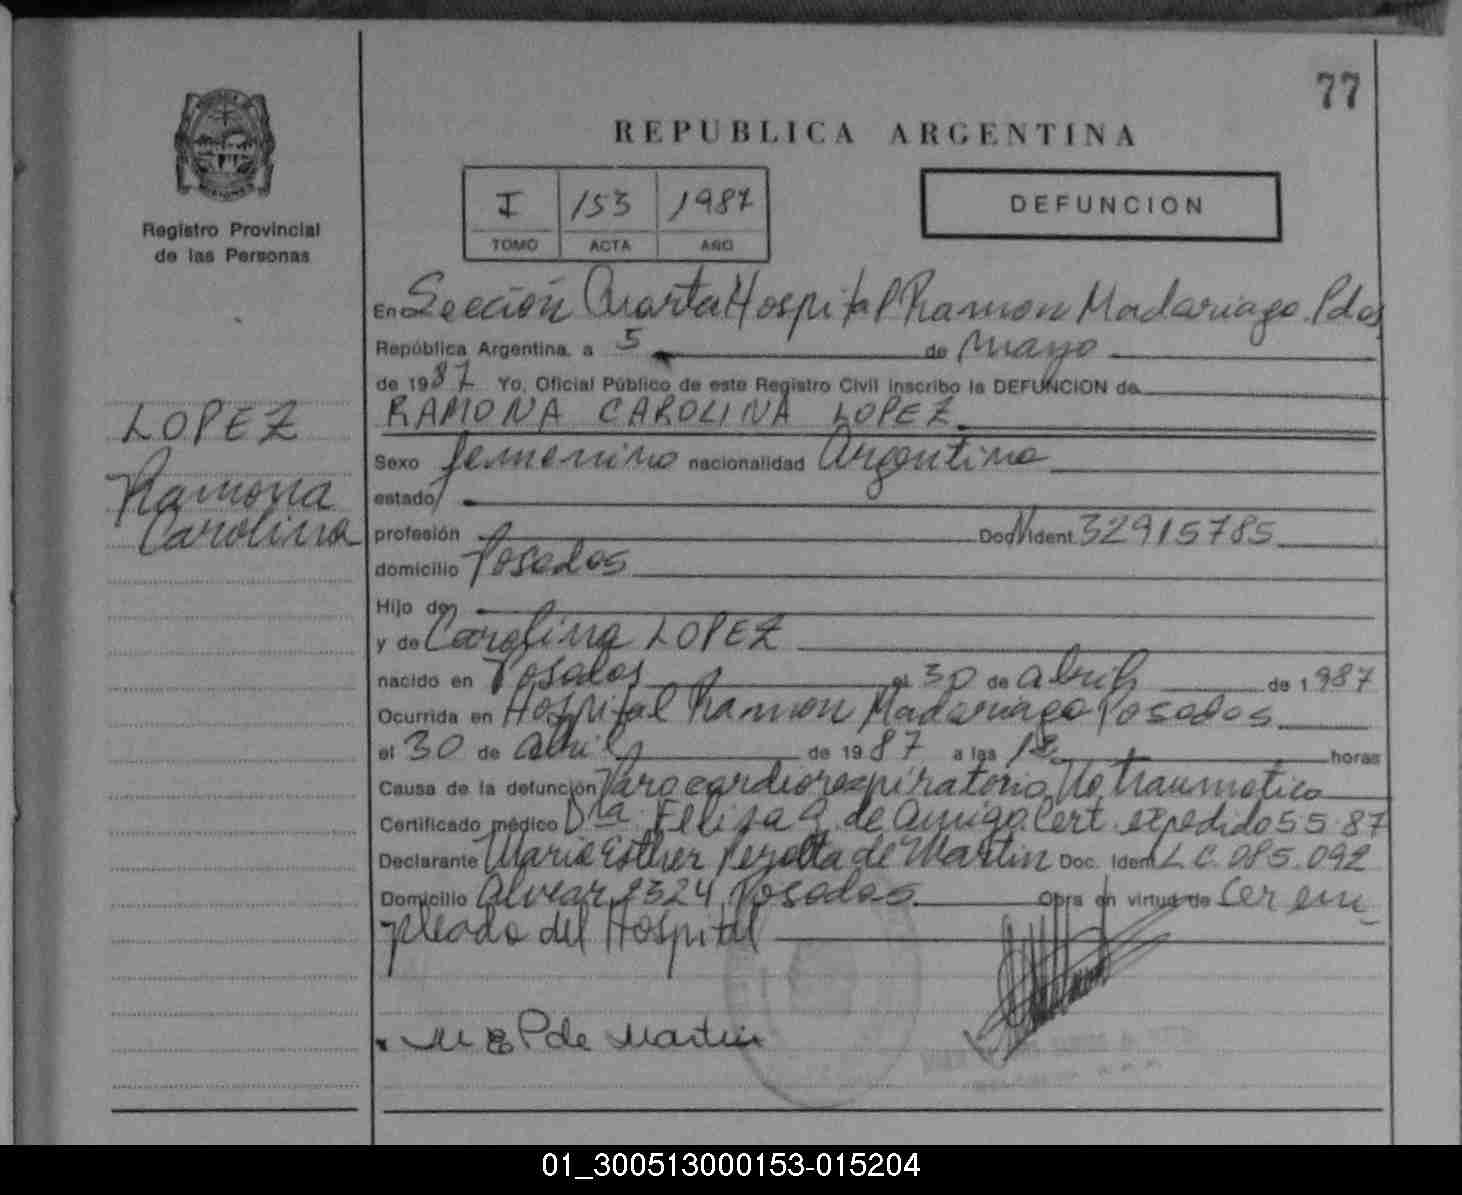 77
REPUBLICA ARGENTINA
I 153 1987
TOMO ACTA AÑO
DEFUNCION
Registro Provincial
de las Personas
LOPEZ
Ramona
Carolina
En Sección Cuarta Hospital Ramon Madariaga Pdas
República Argentina, a 5 de Mayo
de 1987 Yo, Oficial Público de este Registro Civil inscribo la DEFUNCION de
RAMONA CAROLINA LOPEZ
Sexo femenino nacionalidad Argentina
estado
profesión Doc N ident 32915785
domicilio Posadas
Hijo de
y de Carolina LOPEZ
nacido en Posadas el 30 de abril de 1987
Ocurrida en Hospital Ramon Madariaga Posadas
el 30 de abril de 1987 a las 18 horas
Causa de la defunción Paro cardiorespiratorio No traumatico
Certificado médico Dra Elisa G. de Amigo Cert. expedido 5 5 87
Declarante Maria Esther Peralta de Martin Doc. Ident L C. 085.092
Domicilio Alvear 2324 Posadas Obra en virtud de ser em-
pleada del Hospital
M E P de Martin
01_300513000153-015204